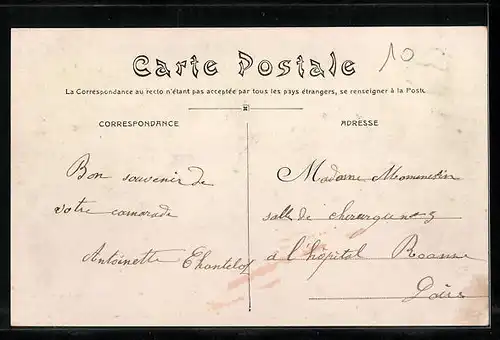 10
Carte Postale
La Correspondance au recto n'étant pas acceptée par tous les pays étrangers, se renseigner à la Poste
CORRESPONDANCE
ADRESSE
Bon souvenir de
votre camarade
Antoinette
Madame
salle de
à l'hôpital Roanne